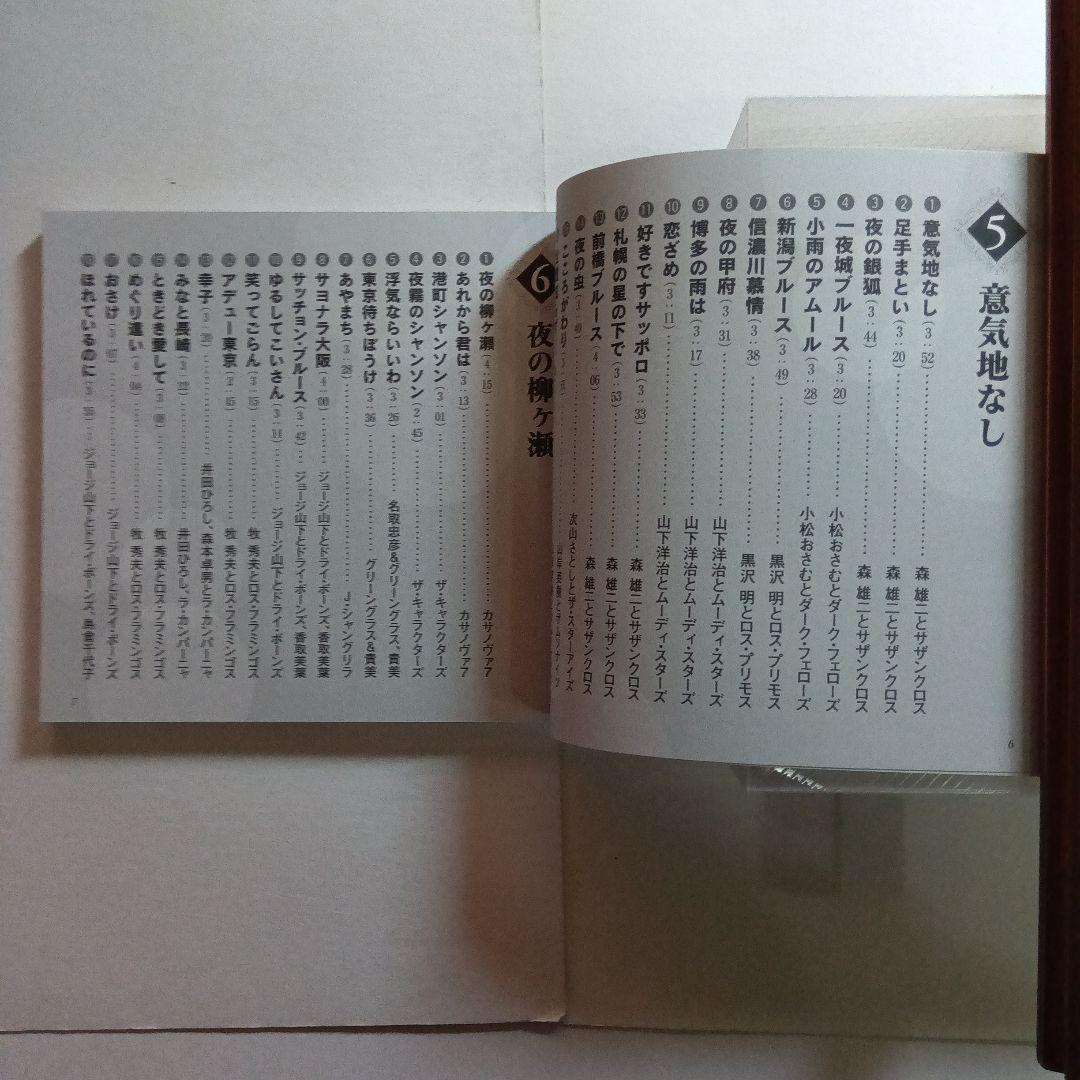 5 意気地なし
❶ 意気地なし (3:52) 森 雄二とサザンクロス
❷ 足手まとい (3:20) 森 雄二とサザンクロス
❸ 夜の銀狐 (3:44) 森 雄二とサザンクロス
❹ 一夜城ブルース (3:20) 小松おさむとダーク・フェローズ
❺ 小雨のアムール (3:28) 小松おさむとダーク・フェローズ
❻ 新潟ブルース (3:49) 黒沢 明とロス・プリモス
❼ 信濃川慕情 (3:38) 黒沢 明とロス・プリモス
❽ 夜の甲府 (3:31) 山下洋治とムーディ・スターズ
❾ 博多の雨は (3:17) 山下洋治とムーディ・スターズ
❿ 恋ざめ (3:11) 山下洋治とムーディ・スターズ
⓫ 好きですサッポロ (3:33) 森 雄二とサザンクロス
⓬ 札幌の星の下で (3:53) 森 雄二とサザンクロス
⓭ 前橋ブルース (4:06) 森 雄二とサザンクロス
⓮ 夜の虫 (3:40) 次山さとしとザ・スターアイズ
こころがわり
6
6 夜の柳ヶ瀬
❶ 夜の柳ヶ瀬 (4:15) カサノヴァ7
❷ あれから君は (3:13) カサノヴァ7
❸ 港町シャンソン (3:01) ザ・キャラクターズ
❹ 夜霧のシャンソン (2:45) ザ・キャラクターズ
❺ 浮気ならいいわ (3:26) 名取忠彦&グリーングラス、貴美
❻ 東京待ちぼうけ (3:36) グリーングラス&貴美
❼ あやまち (3:28) J・シャングリラ
❽ サヨナラ大阪 (4:00) ジョージ山下とドライ・ボーンズ、香取芙葉
❾ サッチョン・ブルース (3:42) ジョージ山下とドライ・ボーンズ、香取芙葉
❿ ゆるしてこいさん (3:14) ジョージ山下とドライ・ボーンズ
⓫ 笑ってごらん (3:15) 牧 秀夫とロス・フラミンゴス
⓬ アデュー東京 (2:45) 牧 秀夫とロス・フラミンゴス
⓭ 幸子 井田ひろし、森本卓男とラ・カンパーニャ
⓮ みなと長崎 (3:22) 井田ひろし、ラ・カンパーニャ
⓯ ときどき愛して 牧 秀夫とロス・フラミンゴス
⓰ めぐり逢い 牧 秀夫とロス・フラミンゴス
⓱ おさけ ジョージ山下とドライ・ボーンズ
⓲ ほれているのに ジョージ山下とドライ・ボーンズ、
7